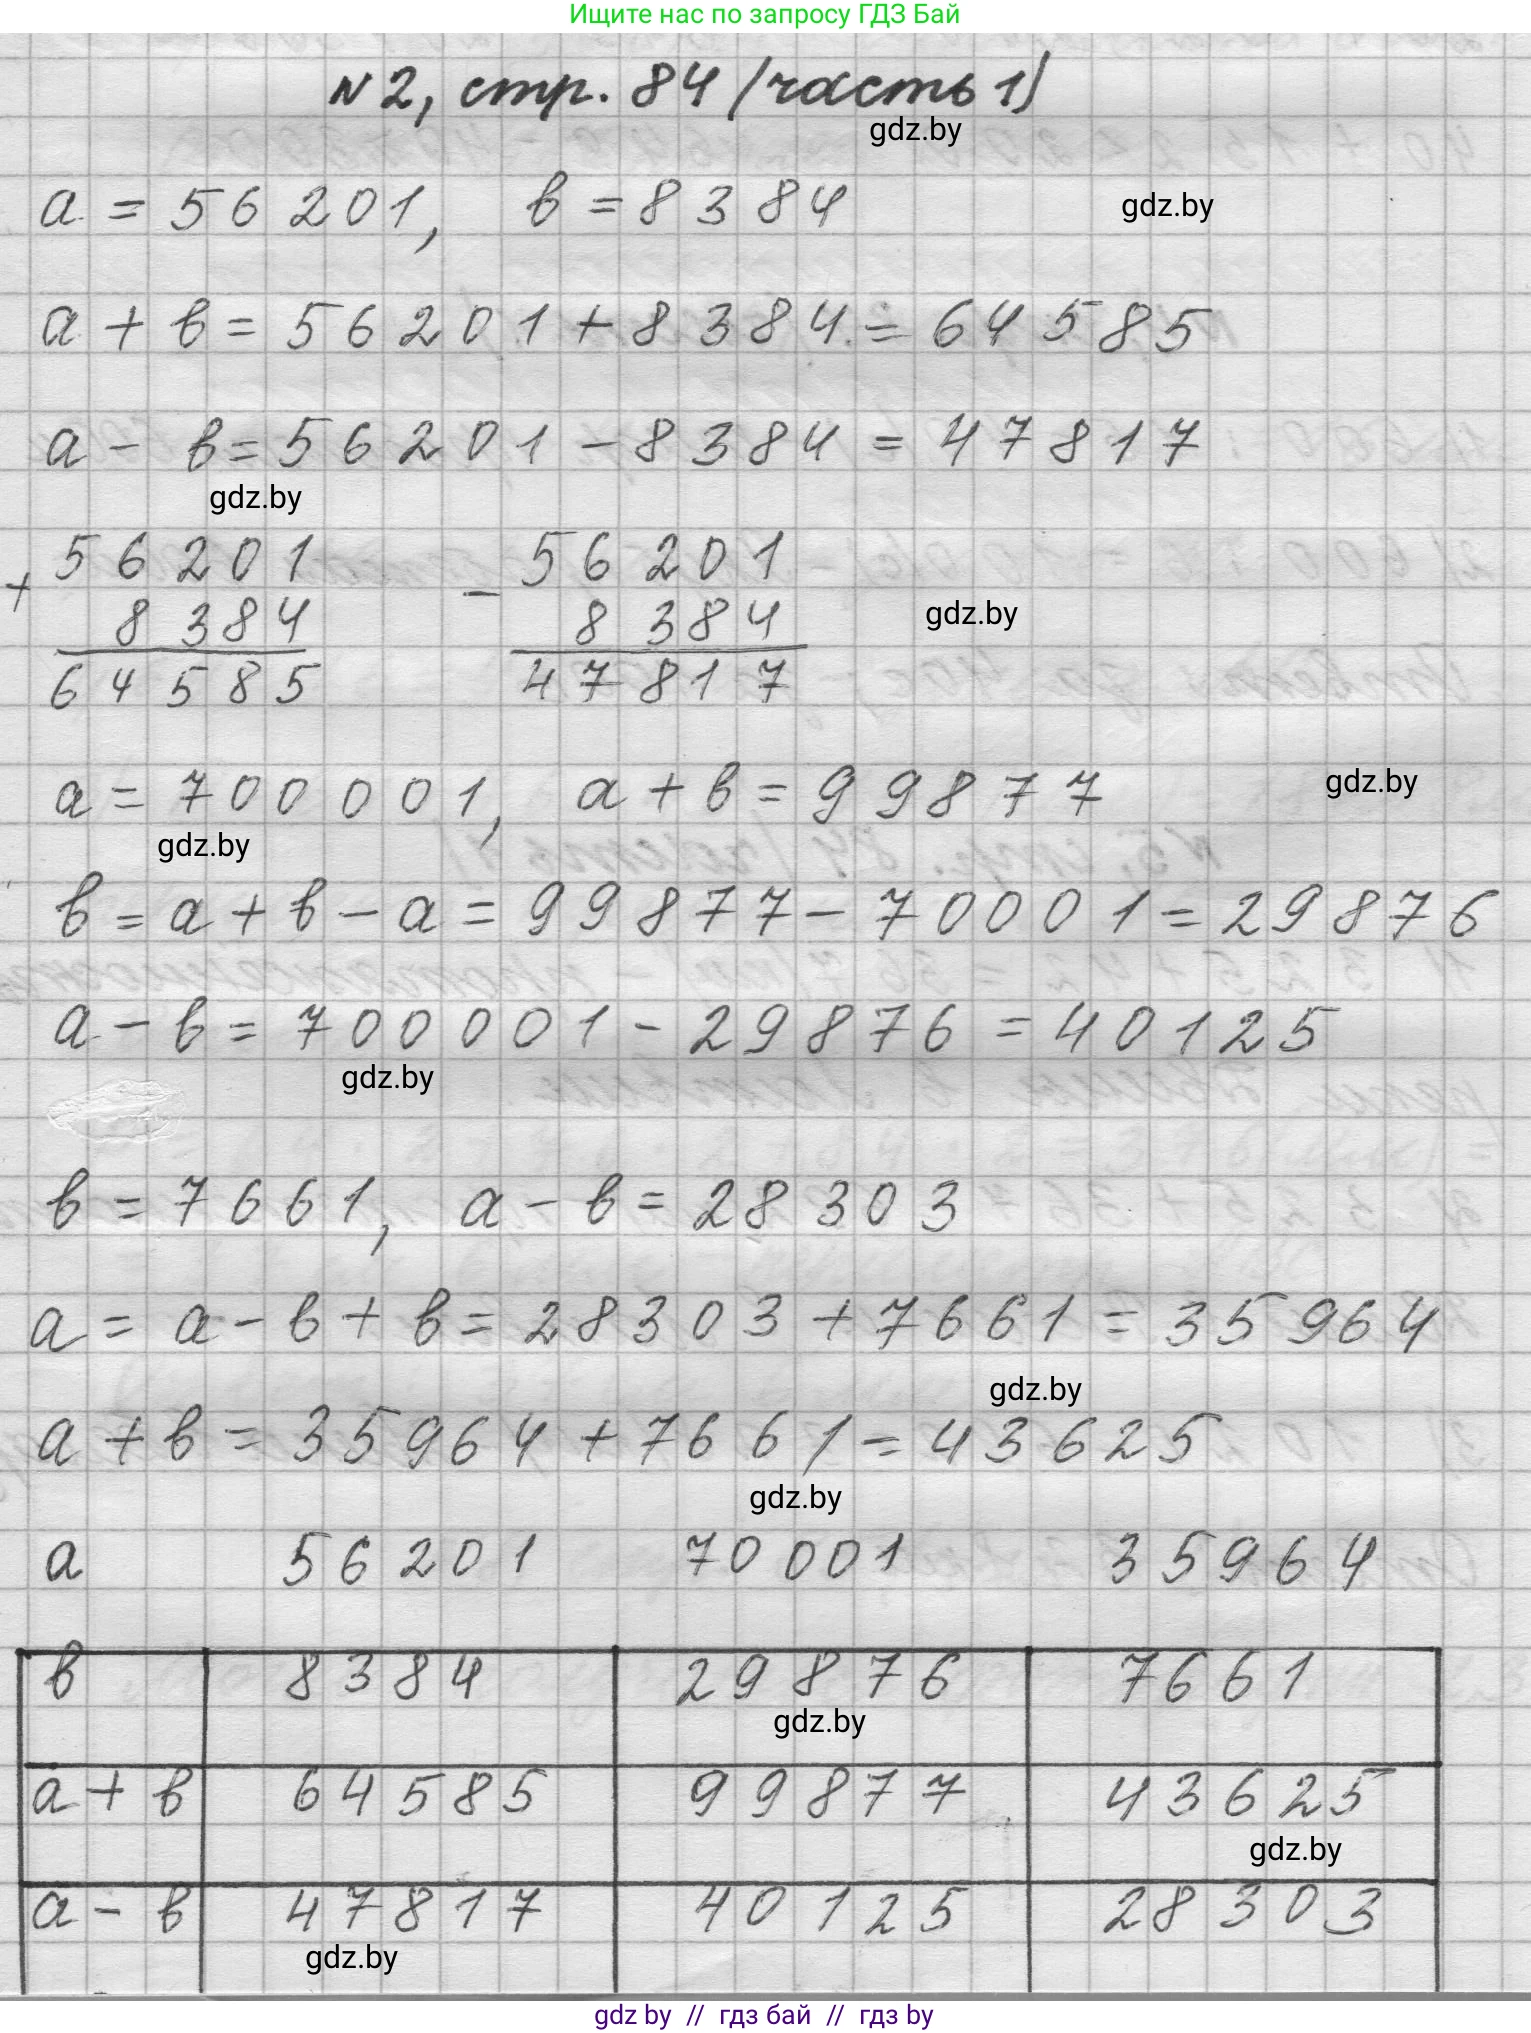 Ищите нас по запросу ГДЗ Бай
№2, стр. 84 (часть 1)
gdz.by
a = 56201, в = 8384
gdz.by
a + в = 56201 + 8384 = 64585
a - в = 56201 - 8384 = 47817
gdz.by
56201 56201
+ -
8384 8384
gdz.by
64585 47817
a = 700001, a + в = 99877
gdz.by
gdz.by
в = a + в - a = 99877 - 70001 = 29876
a - в = 700001 - 29876 = 40125
gdz.by
в = 7661, a - в = 28303
a = a - в + в = 28303 + 7661 = 35964
gdz.by
a + в = 35964 + 7661 = 43625
gdz.by
a 56201 70001 35964
в 8384 29876 7661
gdz.by
a + в 64585 99877 43625
gdz.by
a - в 47817 40125 28303
gdz.by
gdz by // гдз бай // гдз by